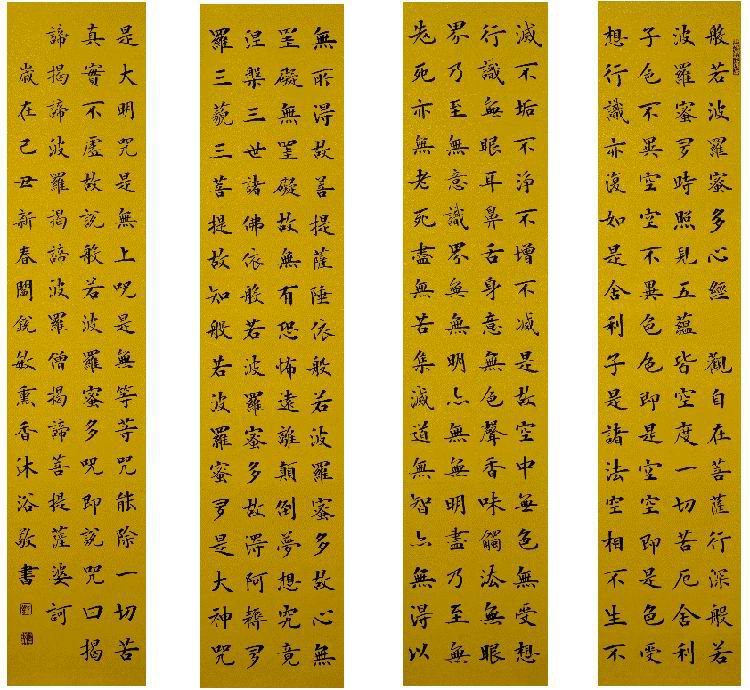 般若波羅蜜多心經 觀自在菩薩行深般若
波羅蜜多時照見五蘊皆空度一切苦厄舍利
子色不異空空不異色色即是空空即是色受
想行識亦復如是舍利子是諸法空相不生不
滅不垢不淨不增不減是故空中無色無受想
行識無眼耳鼻舌身意無色聲香味觸法無眼
界乃至無意識界無無明亦無無明盡乃至無
老死亦無老死盡無苦集滅道無智亦無得以
無所得故菩提薩埵依般若波羅蜜多故心無
罣礙無罣礙故無有恐怖遠離顛倒夢想究竟
涅槃三世諸佛依般若波羅蜜多故得阿耨多
羅三藐三菩提故知般若波羅蜜多是大神咒
是大明咒是無上咒是無等等咒能除一切苦
真實不虛故說般若波羅蜜多咒即說咒曰揭
諦揭諦波羅揭諦波羅僧揭諦菩提薩婆訶
歲在己丑新春銳敏熏香沐浴敬書